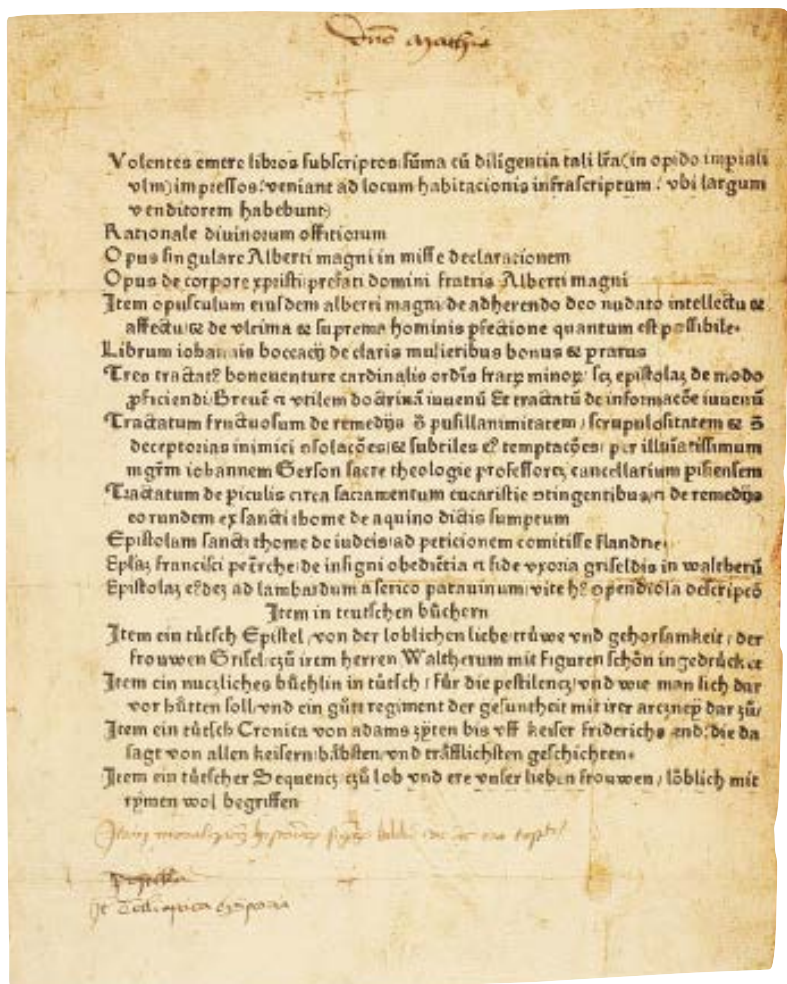 Volentes emere libros subscriptos sūma cū diligentia tali lr̄a (in opido impiali
vlm) impressos: veniant ad locum habitacionis infrascriptum: vbi largum
venditorem habebunt)
Rationale diuinorum offitiorum
Opus singulare Alberti magni in misse declarationem
Opus de corpore xpristi prefati domini fratris Alberti magni
Item opusculum eiusdem alberti magni de adherendo deo nudato intellectu &
affectu & de vltima & suprema hominis pfectione quantum est possibile.
Librum iohannis boccacij de claris mulieribus bonus & pratus
Tres tractatꝰ boneuenture cardinalis ordīs fratrꝝ minoꝝ: scꝫ epistolaꝫ de modo
ꝓficiendi: Breuē et vtilem doctrinā iuuenū Et tractatū de informacōe iuuenū
Tractatum fructuosum de remedijs pusillanimitatem, scrupulositatem &
deceptorias inimici ꝯsolacōes: & subtiles eꝰ temptacōes: per
mgr̄m iohannem Gerson sacre theologie professorem cancellarium pisiensem
Tractatum de piculis circa sacramentum eucaristie ꝯtingentibus, et de remedijs
eorundem ex sancti thome de aquino dictis sumptum
Epistolam sancti thome de iudeis ad peticionem comitisse flandrie.
Ep̄laꝫ francisci petrarche: de insigni obediētia et fide vxoria griseldis in waltherū
Epistolaꝫ ad lambardum a serico patauinum: vite
Item in teutschen bůchern
Item ein tütsch Epistel, von der loblichen liebe trüwe vnd gehorsamkeit, der
frouwen Grisel: czů irem herren Waltherum mit figuren schön ingedrücket
Item ein nuczliches bůchlin in tütsch: für die pestilencz: vnd wie man sich dar
vor hütten soll: vnd ein gůtt regiment der gesuntheit mit irer arczney dar zů/
Item ein tütsch Cronica von adams zyten bis vff keiser friderichs end: die da
sagt von allen keisern: bäbsten: vnd träfflichsten geschichten.
Item ein tütscher Sequencz czů lob vnd ere vnser lieben frouwen, löblich mit
rymen wol begriffen